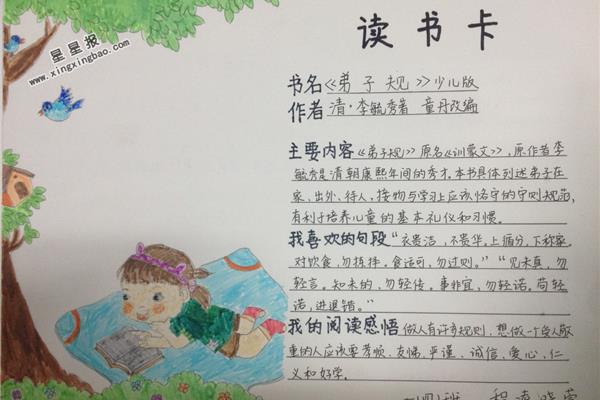 星星报
www.xingxingbao.com
读书卡
书名《弟子规》少儿版
作者 清·李毓秀著 童丹改编
主要内容《弟子规》原名《训蒙文》,原作者李
毓秀是清朝康熙年间的秀才。本书具体列述弟子在
家、出外、待人、接物与学习上应该恪守的守则规范,
有利于培养儿童的基本礼仪和习惯。
我喜欢的句段“衣贵洁,不贵华。上循分,下称家。
对饮食,勿拣择。食适可,勿过则。”“见未真,勿
轻言。知未的,勿轻传。事非宜,勿轻诺。苟轻
诺,进退错。”
我的阅读感悟 做人有许多规则,想做一个受人敬
重的人应该要孝顺、友悌、严谨、诚信、爱心、仁
义和好学。